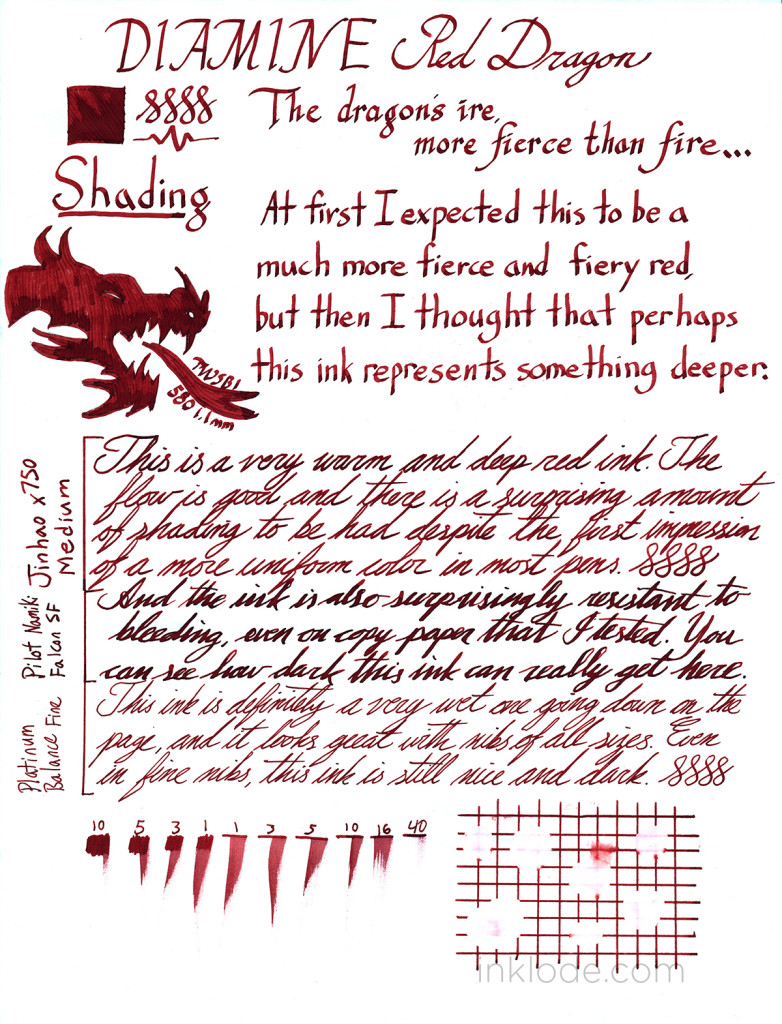 DIAMINE Red Dragon
The dragon's ire,
more fierce than fire...
Shading
At first I expected this to be a
much more fierce and fiery red,
but then I thought that perhaps
this ink represents something deeper:
TWSBI
580 1.1mm
Jinhao x750
Medium
This is a very warm and deep red ink. The
flow is good and there is a surprising amount
of shading to be had despite the first impression
of a more uniform color in most pens.
Pilot Namiki
Falcon SF
And the ink is also surprisingly resistant to
bleeding, even on copy paper that I tested. You
can see how dark this ink can really get here.
Platinum
Balance Fine
This ink is definitely a very wet one going down on the
page, and it looks great with nibs of all sizes. Even
in fine nibs, this ink is still nice and dark.
10 5 3 1 1 3 5 10 16 40
inklode.com